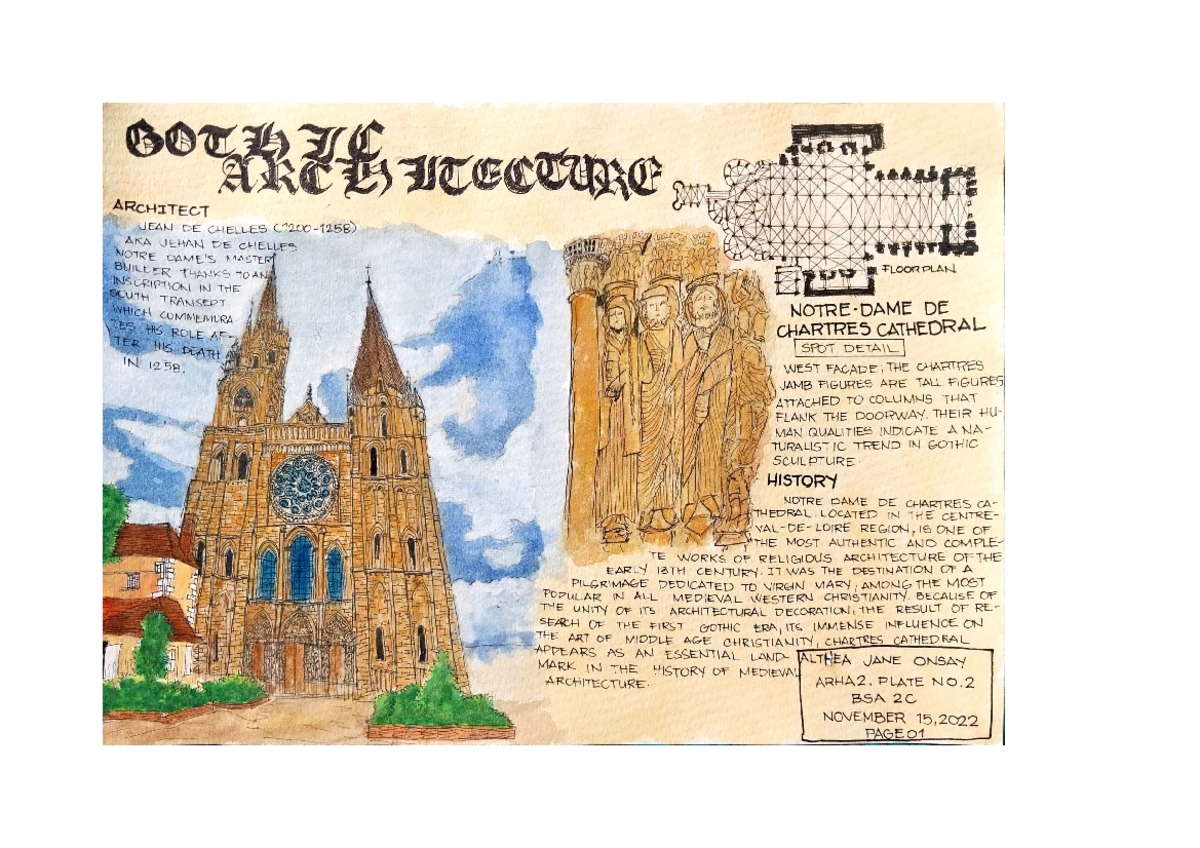 GOTHIC
ARCHITECTURE
ARCHITECT
JEAN DE CHELLES (~1200-1258)
AKA JEHAN DE CHELLES
NOTRE DAME'S MASTER
BUILDER THANKS TO AN
INSCRIPTION IN THE
SOUTH TRANSEPT
WHICH COMMEMORA
TES HIS ROLE AF-
TER HIS DEATH
IN 1258.
FLOORPLAN
NOTRE-DAME DE
CHARTRES CATHEDRAL
SPOT DETAIL
WEST FACADE; THE CHARTRES
JAMB FIGURES ARE TALL FIGURES
ATTACHED TO COLUMNS THAT
FLANK THE DOORWAY. THEIR HU-
MAN QUALITIES INDICATE A NA-
TURALISTIC TREND IN GOTHIC
SCULPTURE.
HISTORY
NOTRE DAME DE CHARTRES CA-
THEDRAL, LOCATED IN THE CENTRE-
VAL-DE-LOIRE REGION, IS ONE OF
THE MOST AUTHENTIC AND COMPLE-
TE WORKS OF RELIGIOUS ARCHITECTURE OF THE
EARLY 13TH CENTURY. IT WAS THE DESTINATION OF A
PILGRIMAGE DEDICATED TO VIRGIN MARY, AMONG THE MOST
POPULAR IN ALL MEDIEVAL WESTERN CHRISTIANITY. BECAUSE OF
THE UNITY OF ITS ARCHITECTURAL DECORATION, THE RESULT OF RE-
SEARCH OF THE FIRST GOTHIC ERA, ITS IMMENSE INFLUENCE ON
THE ART OF MIDDLE AGE CHRISTIANITY, CHARTRES CATHEDRAL
APPEARS AS AN ESSENTIAL LAND-
MARK IN THE HISTORY OF MEDIEVAL
ARCHITECTURE.
ALTHEA JANE ONSAY
ARHA2. PLATE NO.2
BSA 2C
NOVEMBER 15,2022
PAGE01